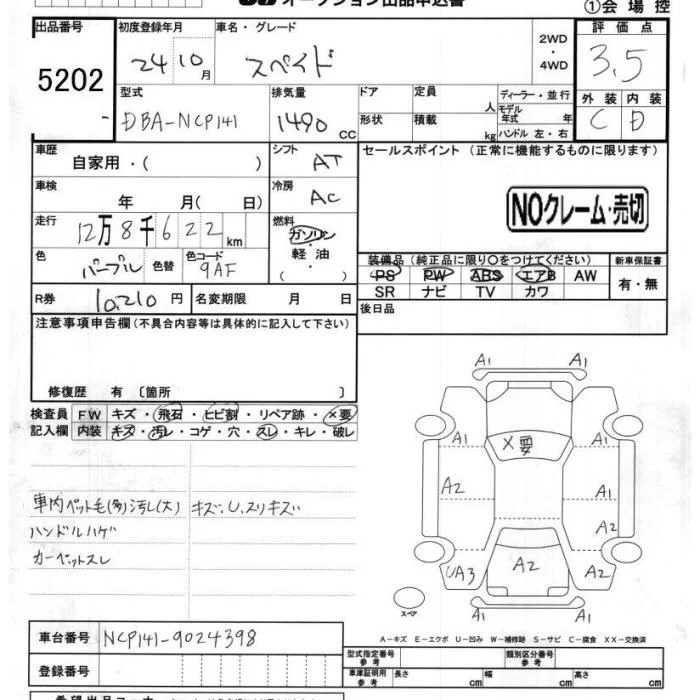 オークション出品申込書
①会場控
出品番号 5202
初度登録年月 24 10月
車名・グレード スペイド
2WD・4WD
評価点 3.5
外装 C 内装 D
型式 DBA-NCP141
排気量 1490 CC
ドア 形状
定員 人
積載 kg
ディーラー・並行
モデル年式 年
ハンドル 左・右
車歴 自家用・( )
シフト AT
セールスポイント (正常に機能するものに限ります)
車検 年 月( 日)
冷房 AC
NOクレーム・売切
走行 12万8千622km
燃料 ガソリン 軽・油 ( )
色 パープル 色替 色コード 9AF
装備品(純正品に限り○をつけてください) 新車保証書
PS PW ABS エアB AW 有・無
SR ナビ TV カワ
R券 10,210円 名変期限 月 日
後日品
注意事項申告欄(不具合内容等は具体的に記入して下さい)
修復歴 有〔箇所 〕
検査員 FW キズ・飛石・ヒビ割・リペア跡・×要
記入欄 内装 キズ・汚レ・コゲ・穴・スレ・キレ・破レ
車内ペット毛(多)汚レ(大) キズ・U、スリキズ
ハンドルハゲ
カーペットスレ
A1 A1
A1 ×要 A1
A2 A1
A2
UA3 A2 A2
スペア
A1 A1
A-キズ E-エクボ U-凹み W-補修跡 S-サビ C-腐食 XX-交換済
車台番号 NCP141-9024398
型式指定番号 参考 類別区分番号 参考
登録番号
車庫証明用 参考 長さ cm 幅 cm 高さ cm
希望出品コーナー